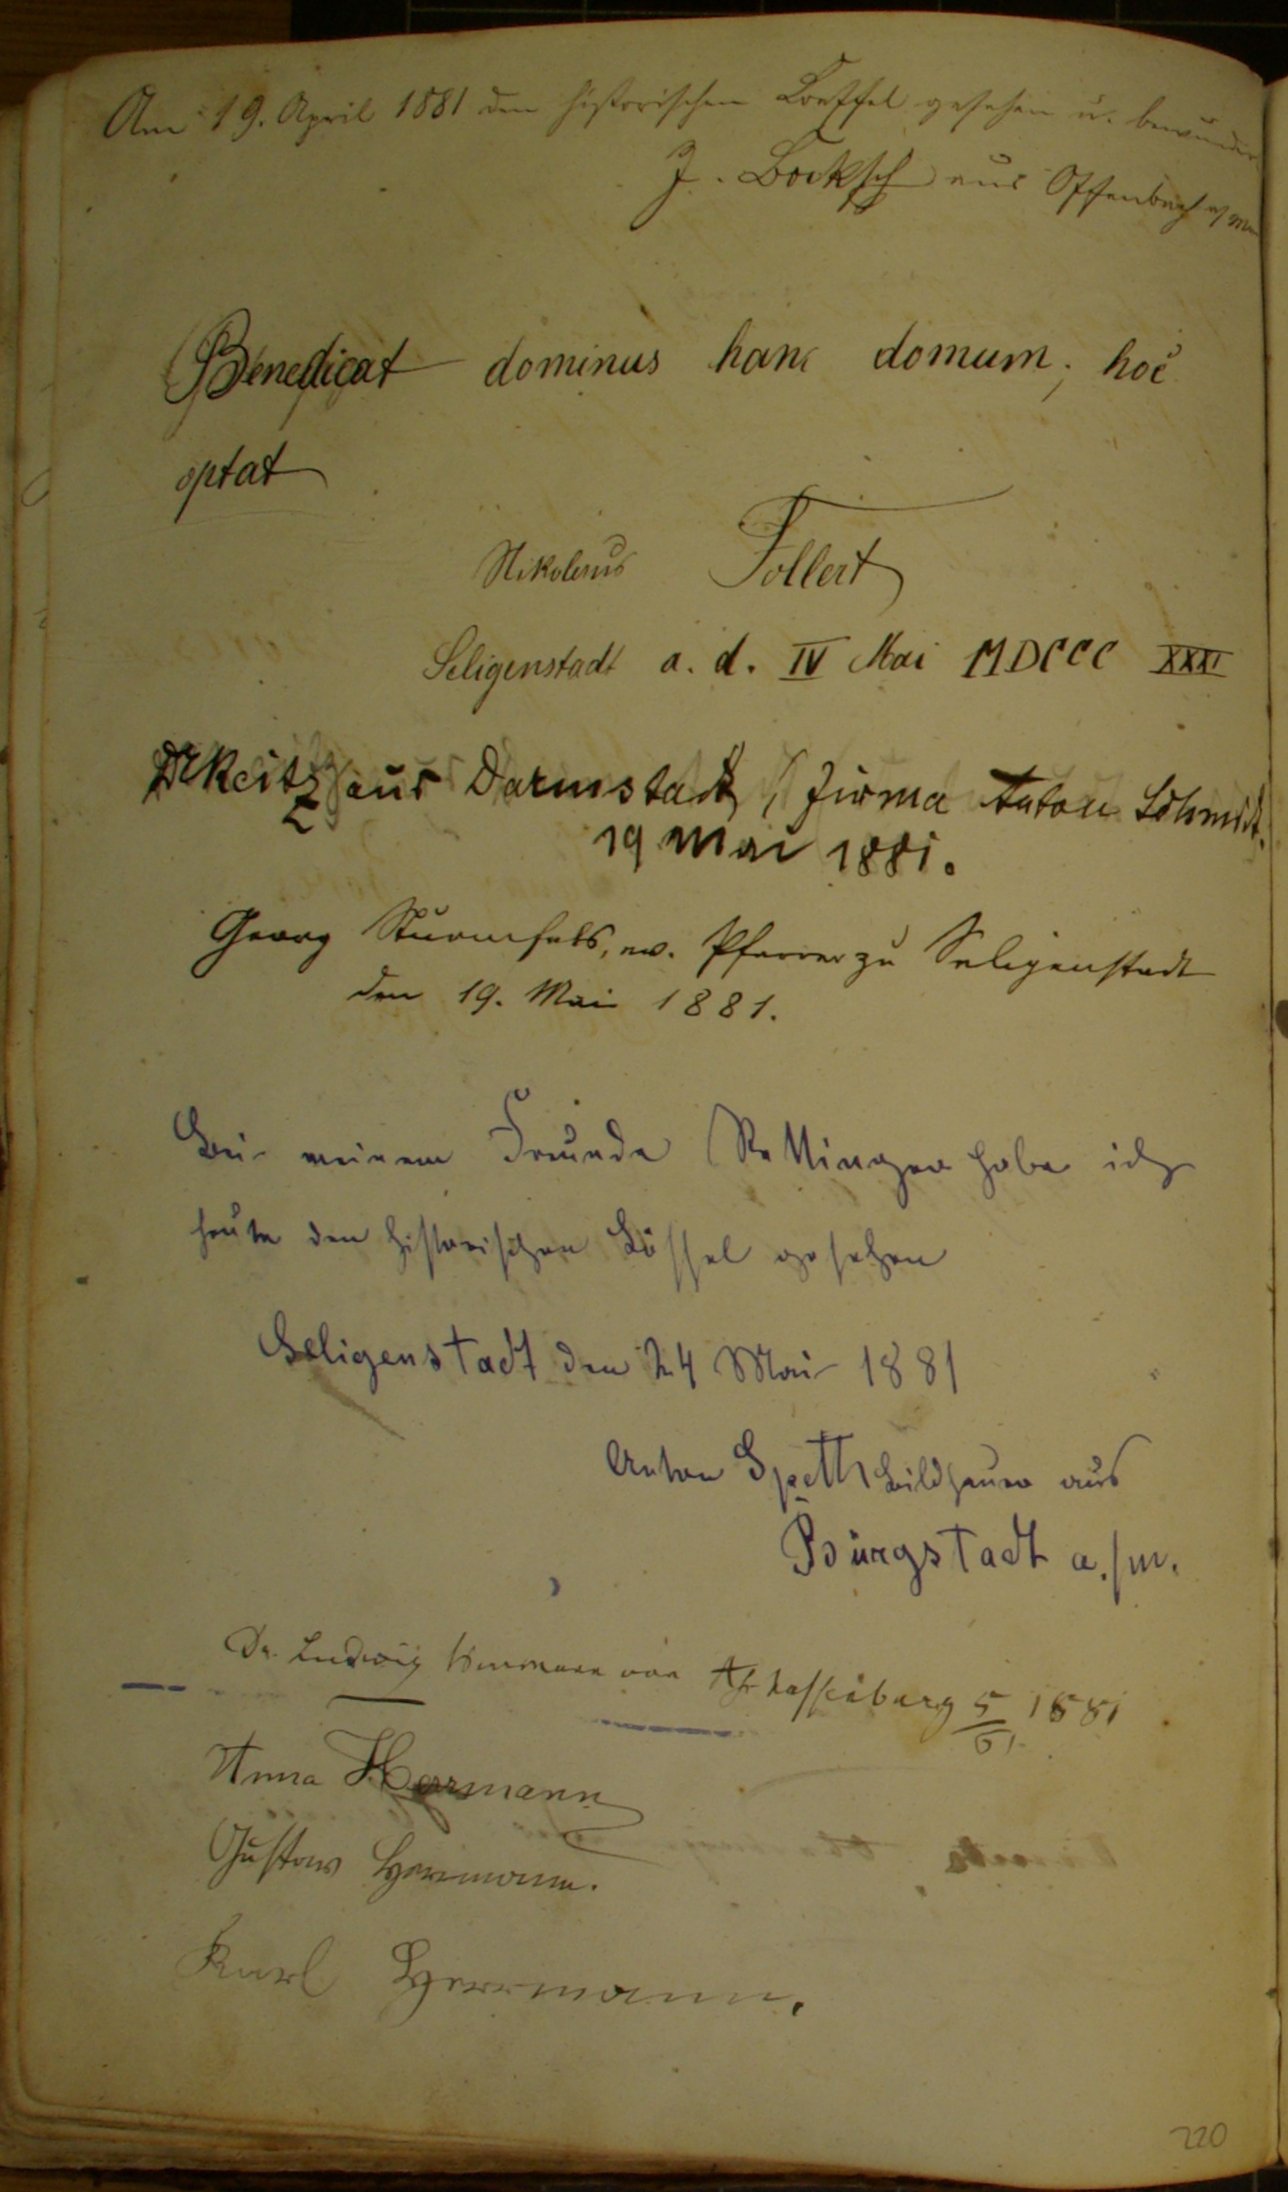 Am 19. April 1881 den historischen Loeffel gesehen u. bewundert
J. Bocksch aus Offenbach a/Main
Benedicat dominus hanc domum; hoc
optat
Nikolaus Follert
Seligenstadt a. d. IV Mai MDCCC XXXI
aus Darmstadt, Firma Anton Schmidt.
19 Mai 1881.
Georg Sturmfels, ev. Pfarrer zu Seligenstadt
den 19. Mai 1881.
Bei meinem Freunde Rettinger habe ich
heute den historischen Löffel gesehen
Seligenstadt den 24 Mai 1881
Anton Speth Bildhauer aus
Bürgstadt a./m.
Dr. Ludwig von Aschaffenburg 5/6 1881
Anna Herrmann
Gustav Herrmann.
Karl Herrmann.
220